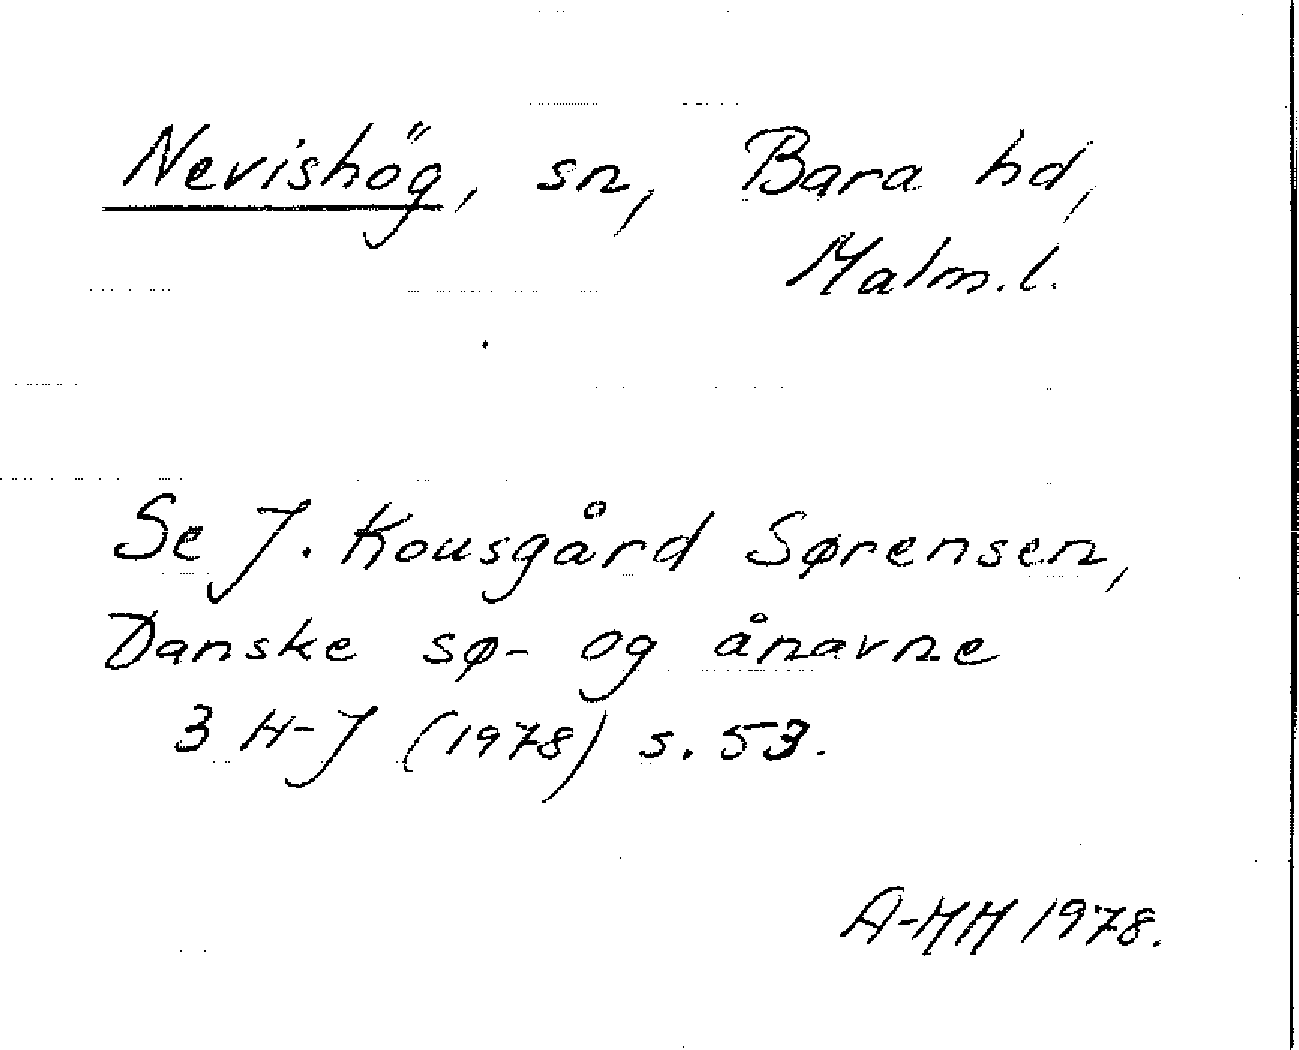 Nevishög, sn, Bara hd,
Malm.l.
Se J. Kousgård Sørensen,
Danske sø- og ånavne
3 H-J (1978) s. 53.
A-HH 1978.